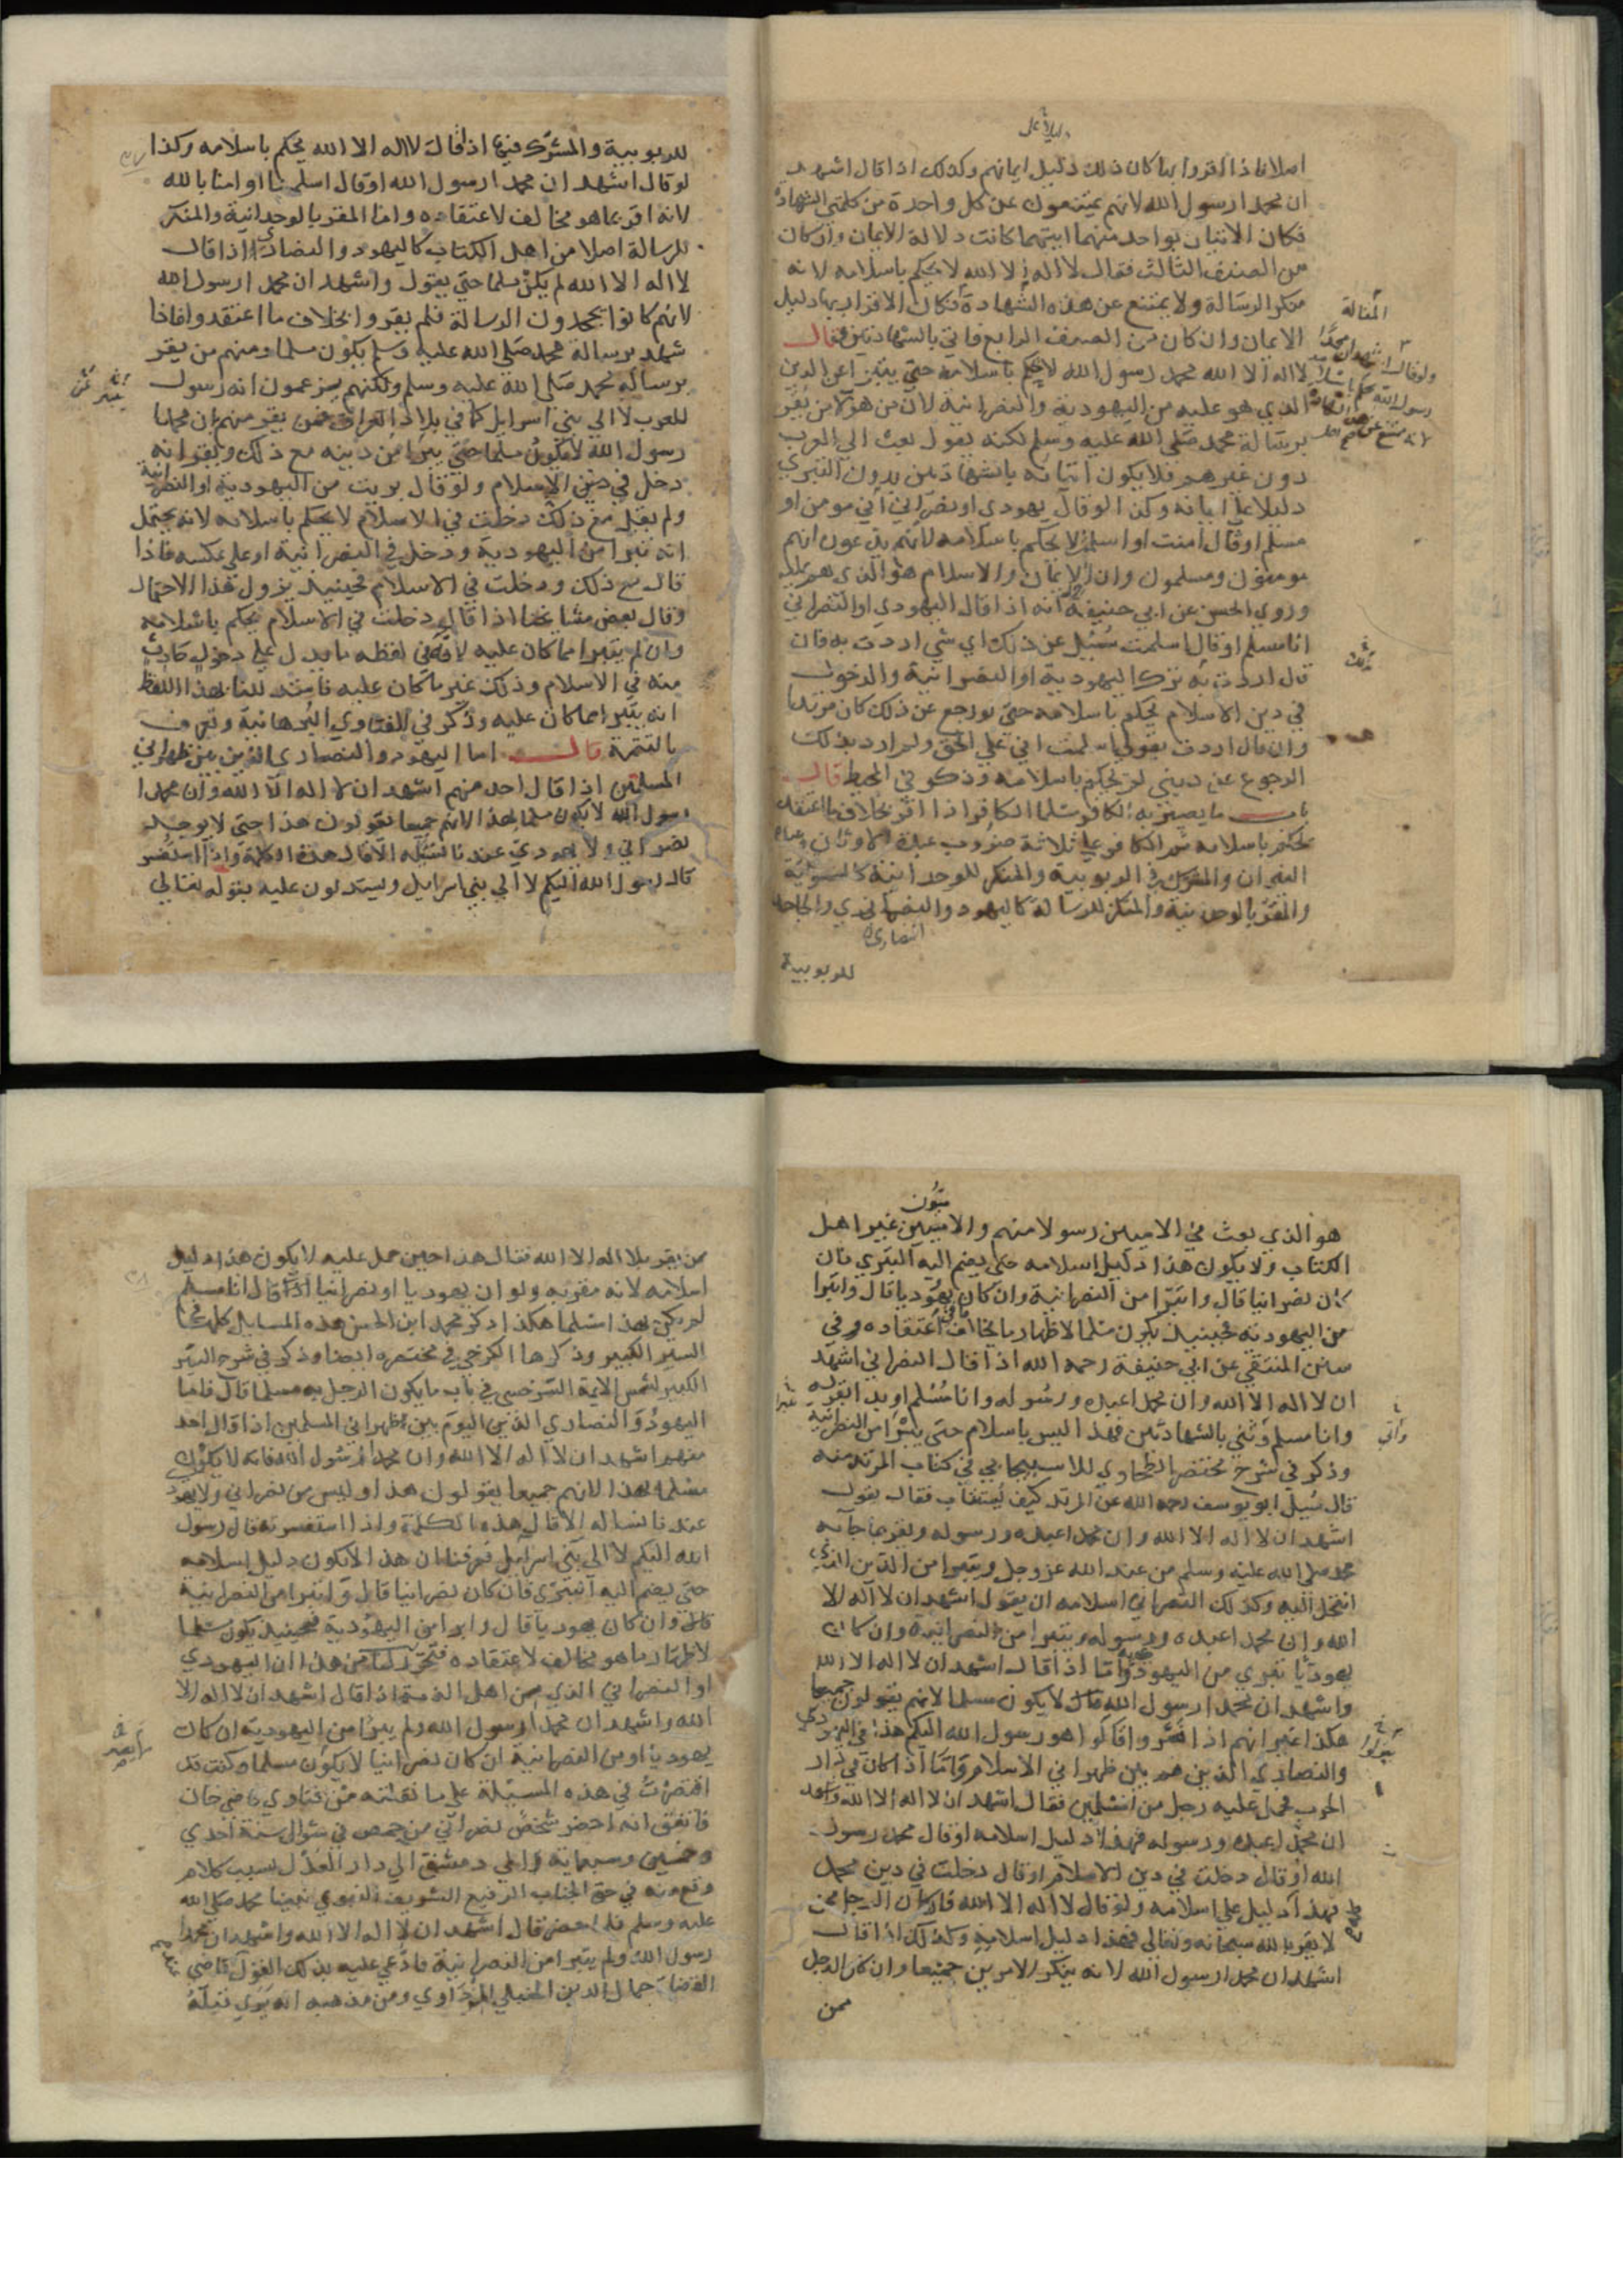 دليلا على
اصلا فاذا اقروا بها كان ذلك دليل ايمانهم وكذلك اذا قال اشهد
ان محمدا رسول الله لانهم يمتنعون عن كل واحدة من كلمتي الشهادة
فكان الاتيان بواحد منهما ايتهما كانت دلالة الايمان وان كان
من الصنف الثالث فقال لا اله الا الله لا يحكم باسلامه لانه
منكر الرسالة ولا يمتنع عن هذه الشهادة فكان الاقرار بها دليل
المقالة
الايمان وان كان من الصنف الرابع فاتي بالشهادتين فقال
لا اله الا الله محمد رسول الله لا يحكم باسلامه حتى يتبرا عن الدين
الذي هو عليه من اليهودية والنصرانية لان من هولآ من يقر
برسالة محمد صلى الله عليه وسلم لكنه يقول بعث الي العرب
دون غيرهم فلا يكون اتيانه بالشهادتين بدون التبري
دليلا على ايمانه وكذا لو قال يهودي او نصراني اني مومن او
مسلم او قال امنت او اسلمت لا يحكم باسلامه لانهم يدعون انهم
مومنون ومسلمون وان الايمان والاسلام هو الذي هم عليه
وروي الحسن عن ابي حنيفة انه اذا قال اليهودي او النصراني
انا مسلم او قال اسلمت سئل عن ذلك اي شي اردت به فان
قال اردت به ترك اليهودية او النصرانية والدخول
في دين الاسلام يحكم باسلامه حتى لو رجع عن ذلك كان مرتدا
وان قال اردت بقولي اسلمت اني علي الحق ولم ارد بذلك
الرجوع عن ديني لم يحكم باسلامه وذكر في المحيط قال
باب ما يصير به الكافر مسلما الكافر اذا اقر بخلاف ما اعتقد
يحكم باسلامه ثم الكافر علي ثلاثة ضروب عبدة الاوثان وعباد
النيران والمشرك في الربوبية والمنكر للوحدانية كالثنوية
والمقر بالوحدانية والمنكر للرسالة كاليهود والنصارى والجاحد
النصارى
للربوبية
للربوبية والمشرك فيها اذا قال لا اله الا الله يحكم باسلامه وكذا
لو قال اشهد ان محمدا رسول الله او قال اسلمنا او امنا بالله
لانه اقر بما هو مخالف لاعتقاده واما المقر بالوحدانية والمنكر
للرسالة اصلا من اهل الكتاب كاليهود والنصارى اذا قال
لا اله الا الله لم يكن مسلما حتى يقول واشهد ان محمدا رسول الله
لانهم كانوا يجحدون الرسالة فلم يقروا بخلاف ما اعتقدوا فاذا
شهد برسالة محمد صلى الله عليه وسلم يكون مسلما ومنهم من يقر
برسالة محمد صلى الله عليه وسلم ولكنهم يزعمون انه رسول
للعرب لا الي بني اسرايل كما في بلاد العراق فمن يقر منهم ان محمدا
رسول الله لا يكون مسلما حتى يتبرا من دينه مع ذلك ويقر انه
دخل في دين الاسلام ولو قال بريت من اليهودية او النصرانية
ولم يقل مع ذلك دخلت في الاسلام لا يحكم باسلامه لانه يحتمل
انه تبرا من اليهودية ودخل في النصرانية او على عكسه فاذا
قال مع ذلك ودخلت في الاسلام فحينيذ يزول هذا الاحتمال
وقال بعض مشايخنا اذا قال دخلت في الاسلام يحكم باسلامه
وان لم يتبرا مما كان عليه لان في لفظه ما يدل علي دخول حادث
منه في الاسلام وذلك غير ما كان عليه فاستدللنا بهذا اللفظ
انه تبرا مما كان عليه وذكر في الفتاوي البرهانية وتعرف
بالتتمة قال اما اليهود والنصاري الذين بين ظهراني
المسلمين اذا قال احد منهم اشهد ان لا اله الا الله وان محمدا
رسول الله لا يكون مسلما بهذا لانهم جميعا يقولون هذا حتى لا يوجد
نصراني ولا يهودي عندنا نسئله الا قال هذه الكلمة واذا استفسر
قال رسول الله اليكم لا الي بني اسرايل ويستدلون عليه بقوله تعالي
هو الذي بعث في الاميين رسولا منهم والاميين غير اهل
الكتاب ولا يكون هذا دليل اسلامه حتى يضم اليه التبري فان
كان نصرانيا قال واتبرا من النصرانية وان كان يهوديا قال واتبرا
من اليهودية فحينيذ يكون مسلما لاظهار ما يخالف اعتقاده وفي
متن المنتقي عن ابي حنيفة رحمه الله اذا قال النصراني اشهد
ان لا اله الا الله وان محمدا عبده ورسوله وانا مسلم او يد القوله
وانا مسلم ونفي بالشهادتين فهذا ليس باسلام حتى يتبرا من النصرانية
وذكر في شرح مختصر الطحاوي للاسبيجابي في كتاب المرتد منه
قال سيل ابو يوسف رحمه الله عن المرتد كيف يستتاب فقال يقول
اشهد ان لا اله الا الله وان محمدا عبده ورسوله ويقر بما جا به
محمد صلى الله عليه وسلم من عند الله عز وجل ويتبرا من الدين الذي
انتحل اليه وكذلك النصراني اسلامه ان يقول اشهد ان لا اله الا
الله وان محمدا عبده ورسوله ويتبرا من النصرانية وان كان
يهوديا تبري من اليهودية واما اذا قال اشهد ان لا اله الا الله
واشهد ان محمدا رسول الله قال لا يكون مسلما لانهم يقولون جميعا
هكذا غير انهم اذا فسروا قالوا هو رسول الله اليكم هذا في اليهودي
والنصاري الذين هم بين ظهراني الاسلام واما اذا كان في دار
الحرب فحمل عليه رجل من المسلمين فقال اشهد ان لا اله الا الله واشهد
ان محمدا عبده ورسوله فهذا دليل اسلامه او قال محمد رسول
الله او قال دخلت في دين الاسلام او قال دخلت في دين محمد
فهذا دليل على اسلامه ولو قال لا اله الا الله فان كان الرجل ممن
لا يقر بالله سبحانه وتعالي فهذا دليل اسلامه وكذلك اذا قال
اشهد ان محمدا رسول الله لانه ينكر الامرين جميعا وان كان الرجل
ممن
ممن يقر بلا اله الا الله فقال هذا حين حمل عليه لا يكون هذا دليل
اسلامه لانه مقر به ولو ان يهوديا او نصرانيا اذا قال انا مسلم
لم يكن بهذا مسلما هكذا ذكر محمد ابن الحسن هذه المسايل كلها في
السير الكبير وذكرها الكرخي في مختصره ايضا وذكر في شرح السير
الكبير لشمس الايمة السرخسي في باب ما يكون الرجل به مسلما قال فاما
اليهود والنصاري الذين اليوم بين ظهراني المسلمين اذا قال احد
منهم اشهد ان لا اله الا الله وان محمدا رسول الله فانه لا يكون
مسلما بهذا لانهم جميعا يقولون هذا وليس من نصراني ولا يهودي
عندنا نساله الا قال هذه الكلمة واذا استفسرته قال رسول
الله اليكم لا الي بني اسرايل فعرفنا ان هذا لا يكون دليل اسلامه
حتى يضم اليه التبري فان كان نصرانيا قال وابرا من النصرانية
قال وان كان يهوديا قال وابرا من اليهودية فحينيذ يكون مسلما
لاظهار ما هو مخالف لاعتقاده فتحرر لنا من هذا ان اليهودي
او النصراني الذي من اهل الذمة اذا قال اشهد ان لا اله الا
الله واشهد ان محمدا رسول الله ولم يتبرا من اليهودية ان كان
يهوديا او من النصرانية ان كان نصرانيا لا يكون مسلما وكنت قد
اقتصرت في هذه المسيلة علي ما نقلته من فتاوي قاضي خان
فاتفق انه احضر شخص نصراني من حمص في شوال سنة احدي
وخمسين وسبعماية الي دمشق الي دار العدل بسبب كلام
وقع منه في حق الجناب الرفيع الشريف النبوي نبينا محمد صلى الله
عليه وسلم فلما حضر قال اشهد ان لا اله الا الله واشهد ان محمدا
رسول الله ولم يتبرا من النصرانية فادعي عليه بذلك القول قاضي
القضاة جمال الدين الحنبلي المرداوي ومن مذهبه انه يري قتله